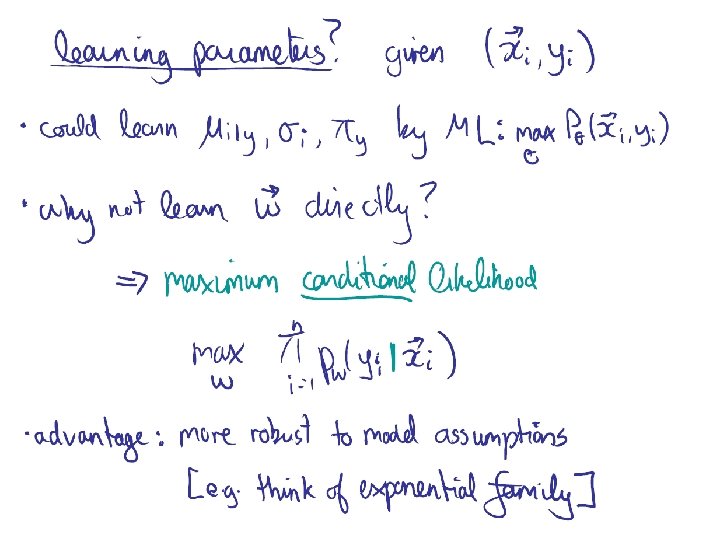 learning parameters? given (x⃗ᵢ, yᵢ)
• could learn μᵢ|y, σᵢ, πy by ML: max_θ P_θ(x⃗ᵢ, yᵢ)
• why not learn w⃗ directly?
⇒ maximum conditional likelihood
max_w ∏ⁿᵢ₌₁ p_w(yᵢ | x⃗ᵢ)
• advantage: more robust to model assumptions
[e.g. think of exponential family]